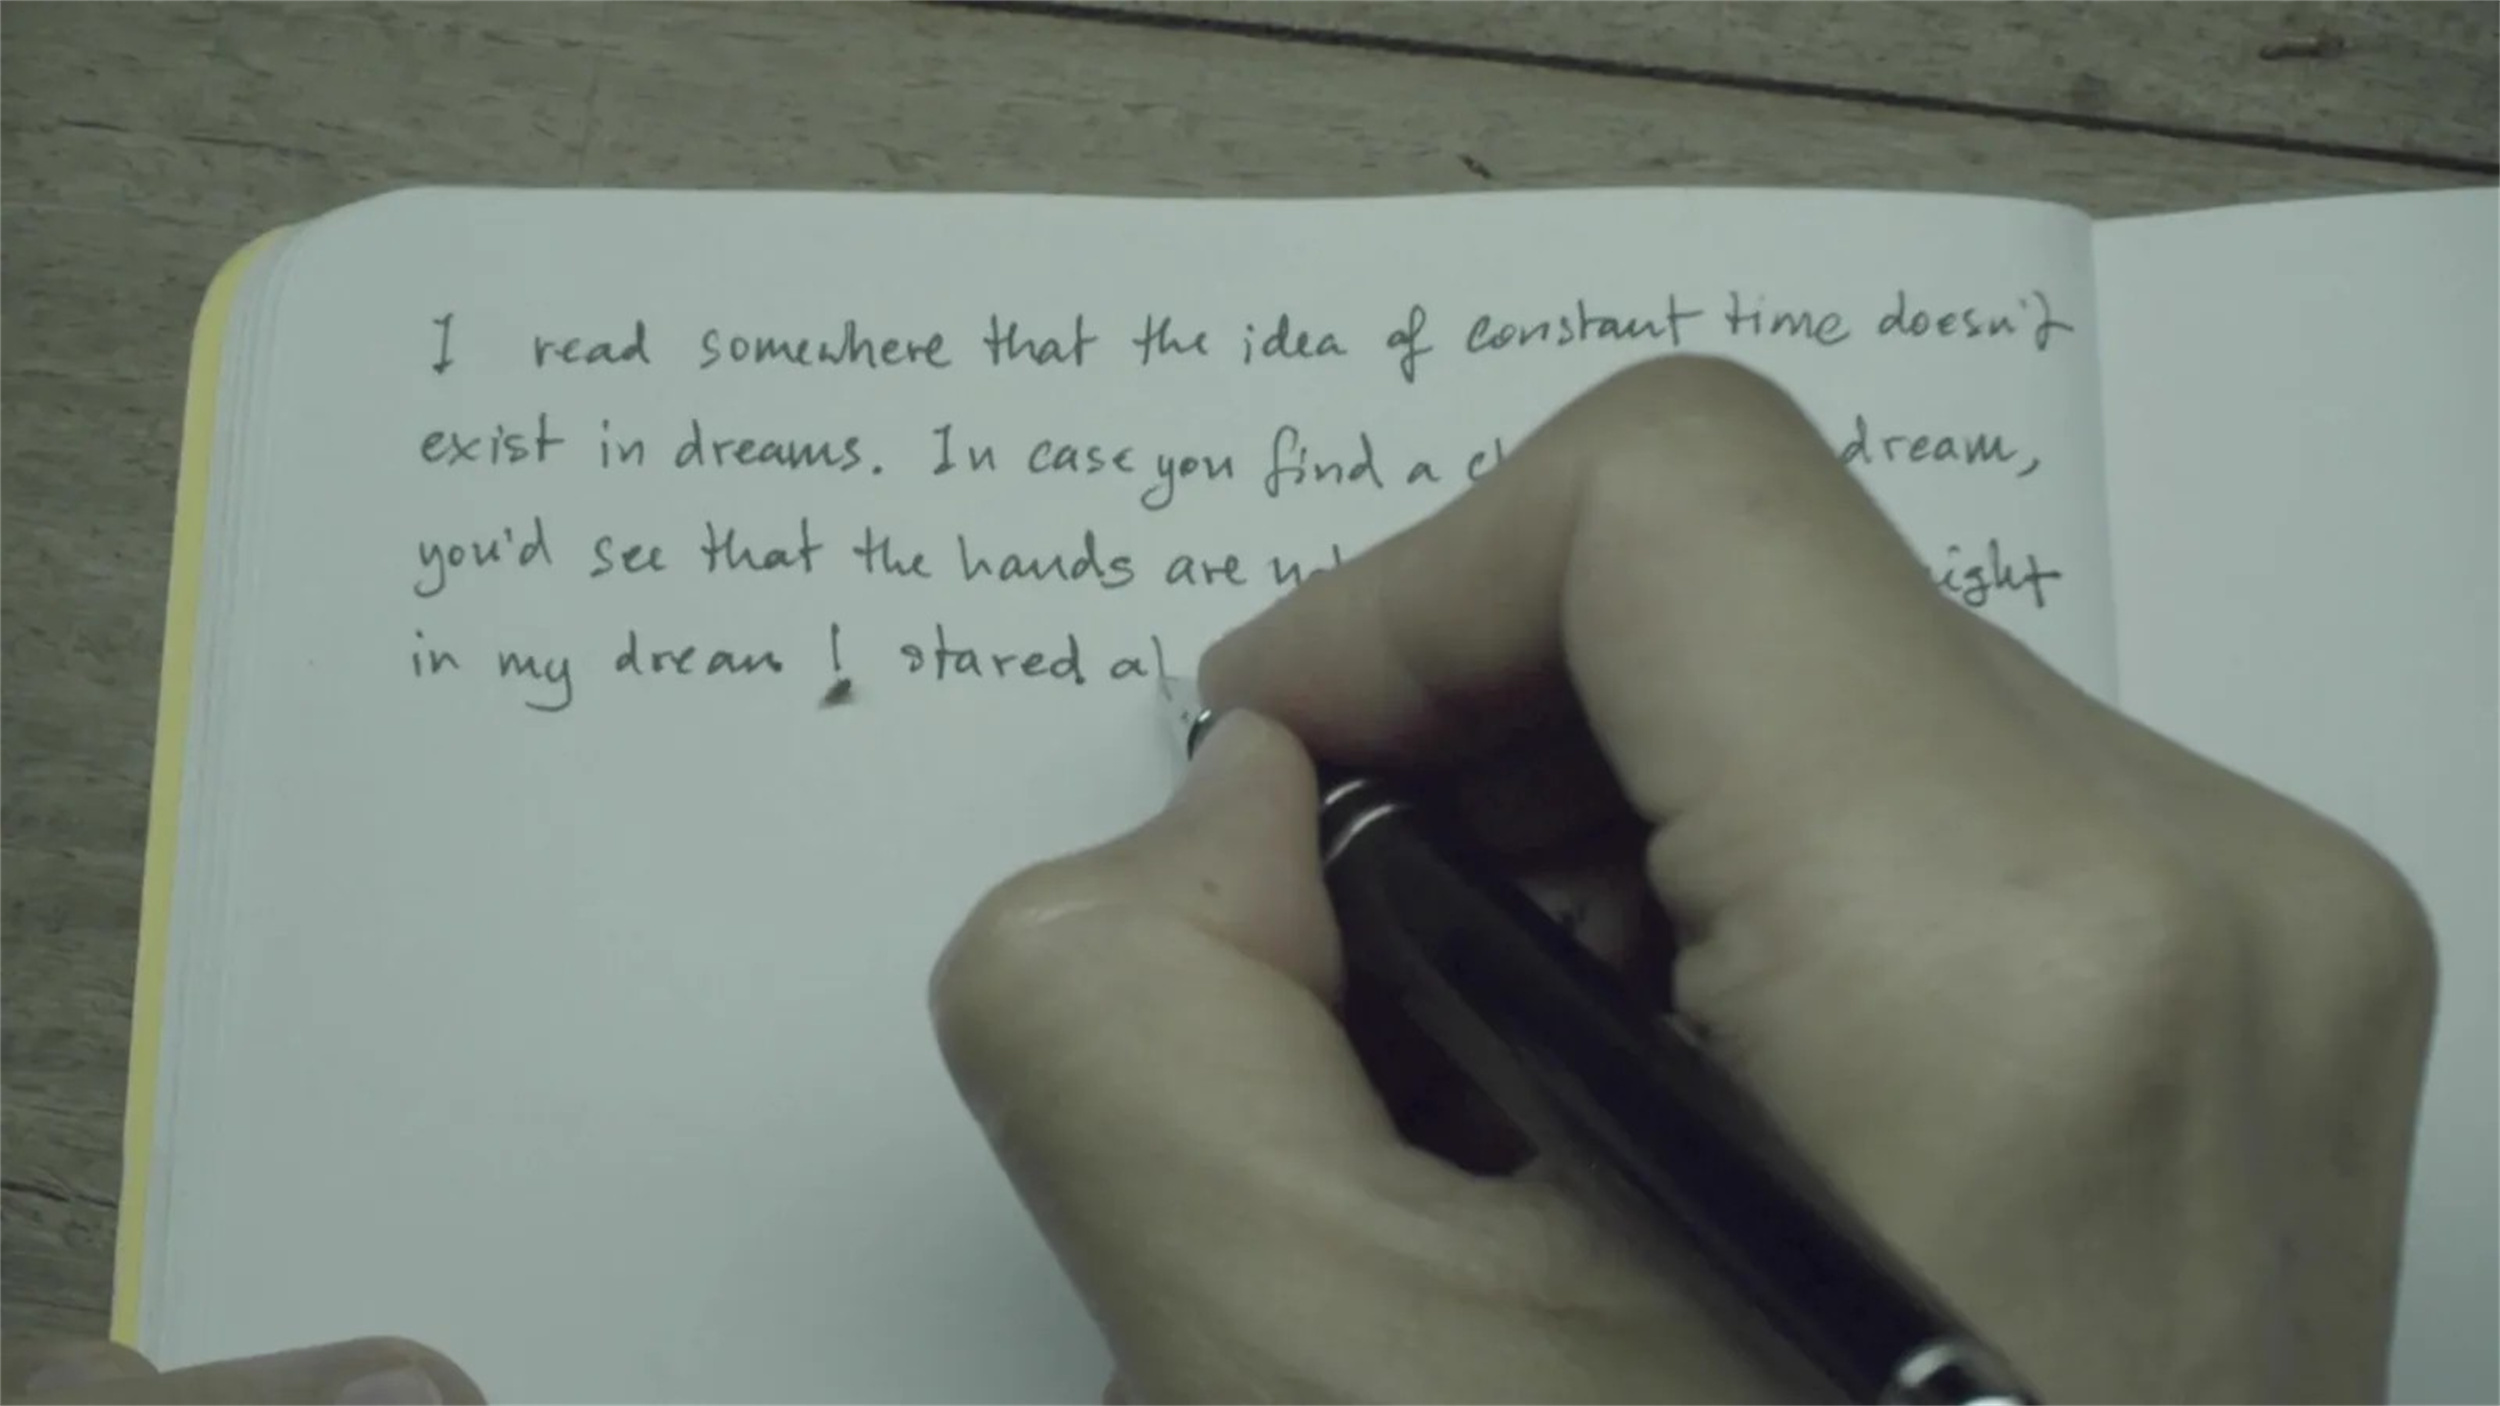 I read somewhere that the idea of constant time doesn't
exist in dreams. In case you find a dream,
you'd see that the hands are
in my dream I stared